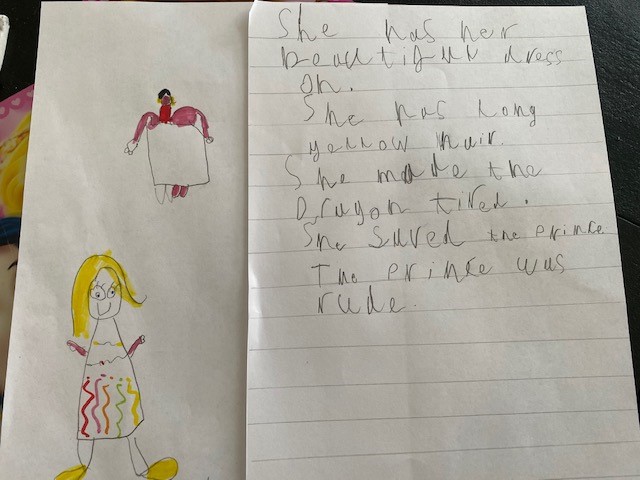 She has her
beautiful dress
on.
She has long
yellow hair.
She made the
Dragon tired.
She saved the prince.
The prince was
rude.